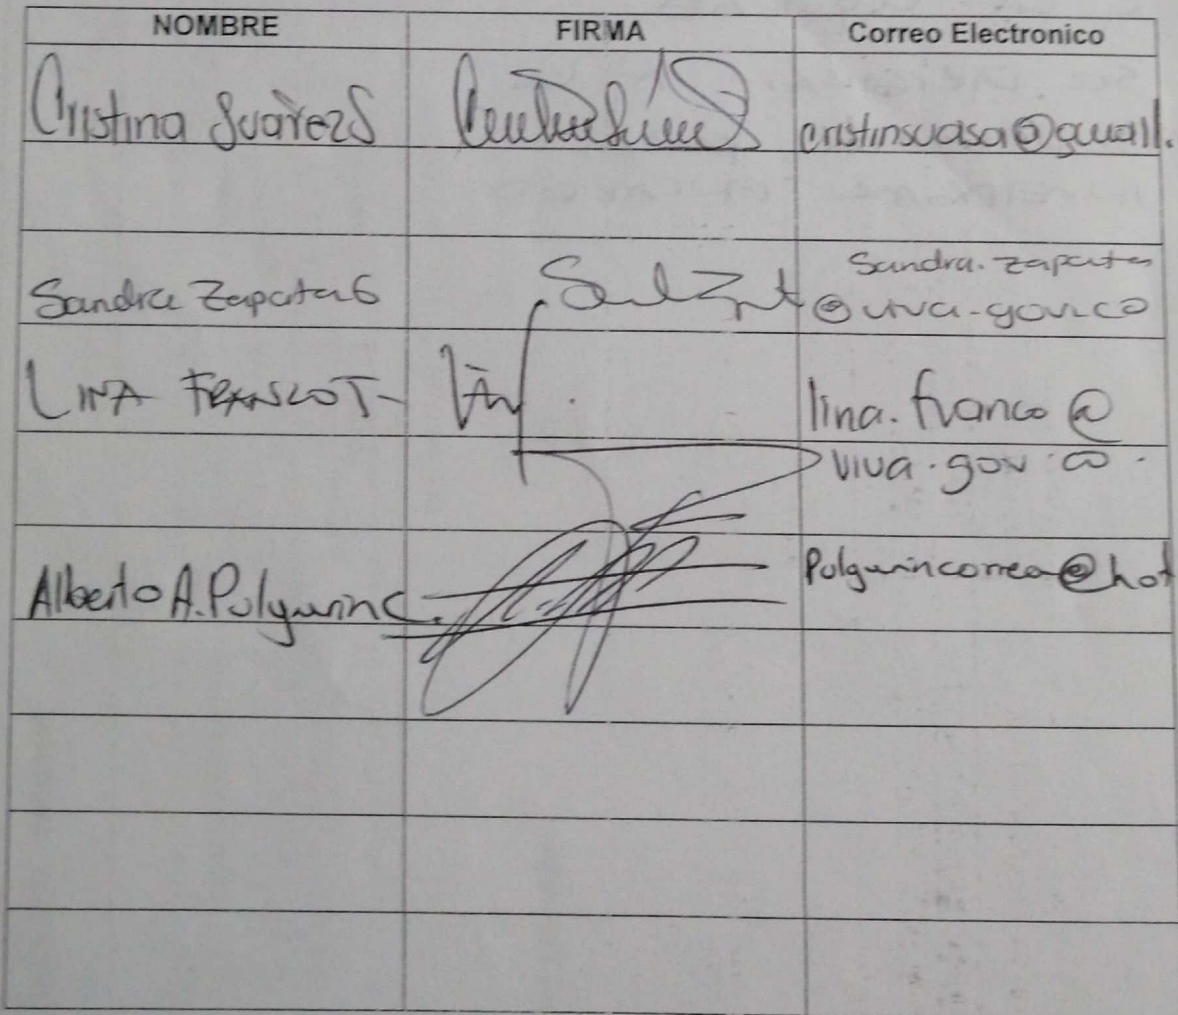 NOMBRE FIRMA Correo Electronico
Cristina Suárez S cristinsuasa@gmail.
Sandra.zapata
Sandra Zapata G @viva.gov.co
LINA FRANCO T lina.franco@
viva.gov.co.
Alberto A. Pulgarin C. Pulgarincorrea@hot